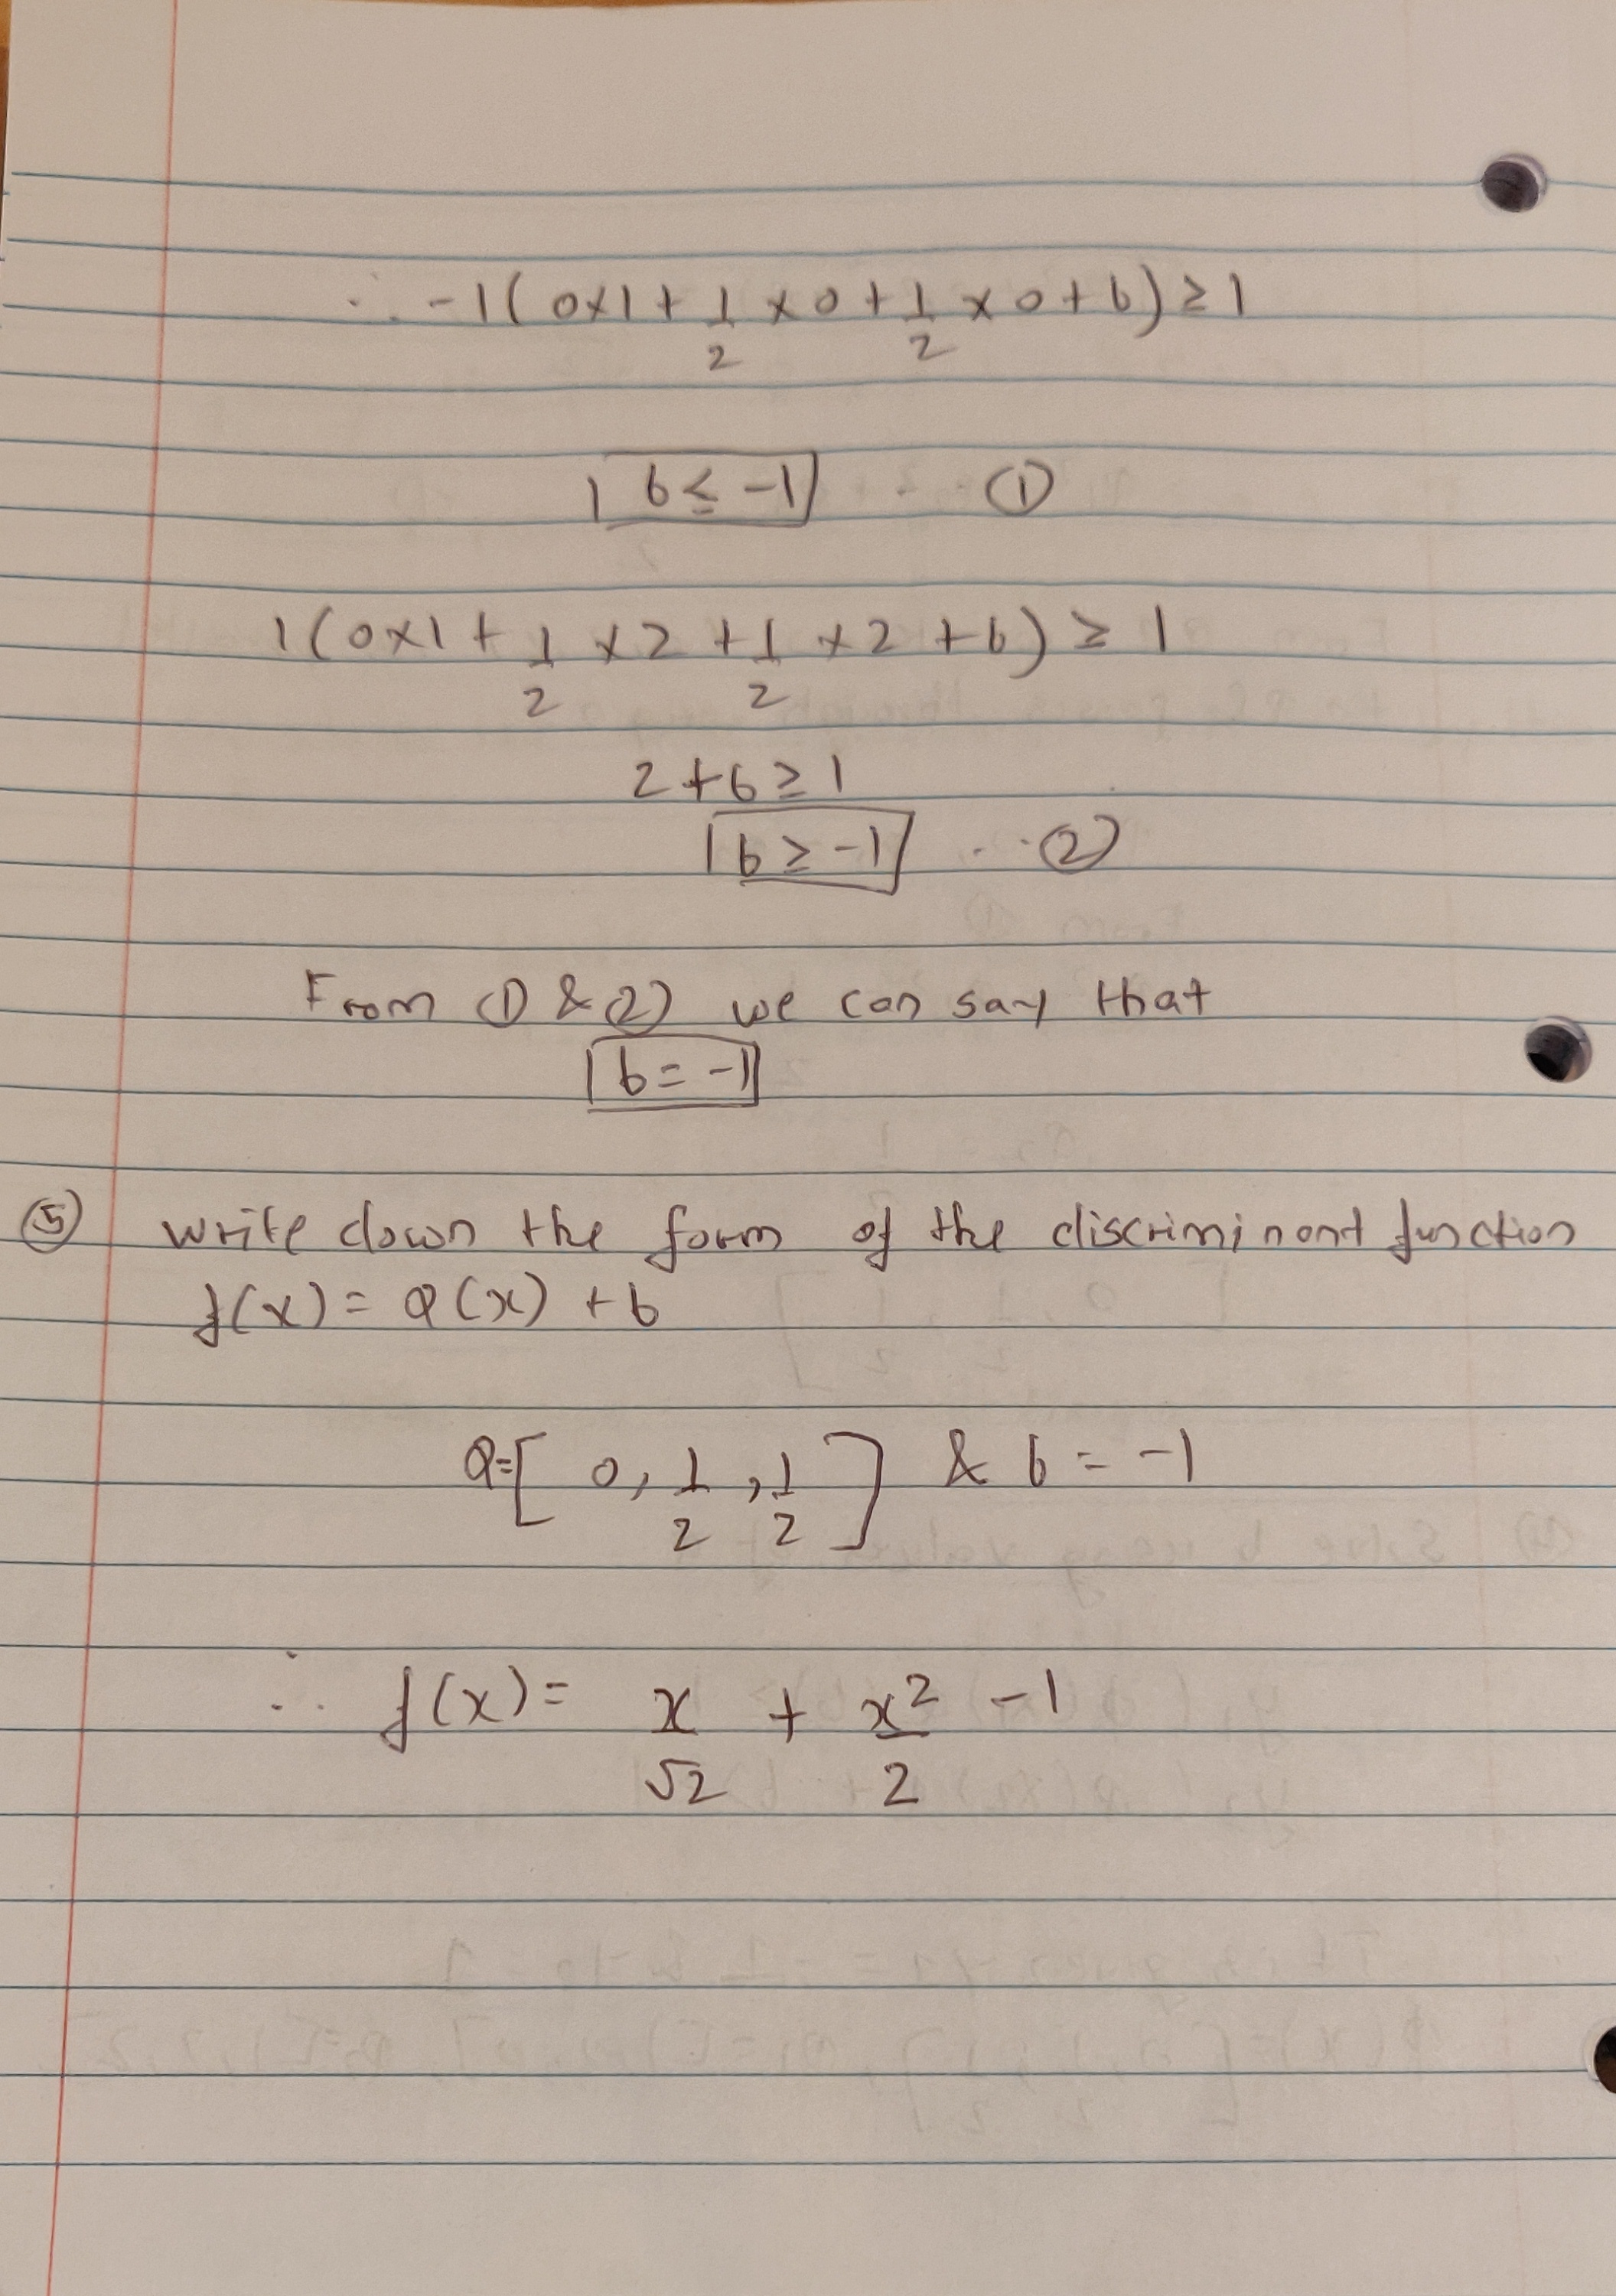 ∴ -1(0×1 + 1/2 ×0 + 1/2 ×0 + b) ≥ 1
b ≤ -1 ... ①
1(0×1 + 1/2 ×2 + 1/2 ×2 + b) ≥ 1
2 + b ≥ 1
b ≥ -1 ... ②
From ① & ② we can say that
b = -1
⑤ write down the form of the discriminant function
f(x) = Q(x) + b
Q=[0, 1/2, 1/2] & b = -1
∴ f(x) = x/√2 + x²/2 - 1